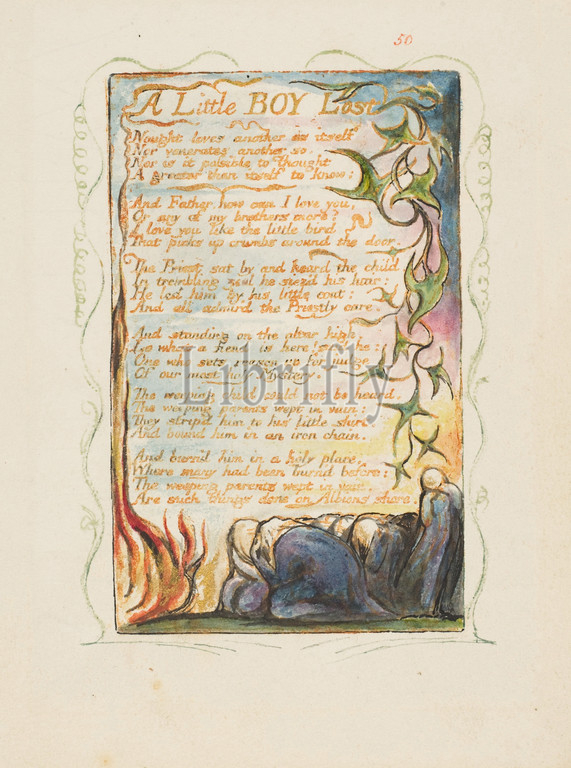 50
A Little BOY Lost
Nought loves another as itself
Nor venerates another so.
Nor is it possible to Thought
A greater than itself to know:
And Father, how can I love you,
Or any of my brothers more?
I love you like the little bird
That picks up crumbs around the door.
The Priest sat by and heard the child
In trembling zeal he siez'd his hair:
He led him by his little coat:
And all admir'd the Priestly care.
And standing on the altar high,
Lo what a fiend is here! said he:
One who sets reason up for judge
Of our most holy Mystery.
The weeping child could not be heard,
The weeping parents wept in vain:
They strip'd him to his little shirt,
And bound him in an iron chain.
And burn'd him in a holy place,
Where many had been burn'd before:
The weeping parents wept in vain,
Are such things done on Albions shore.
Librifly